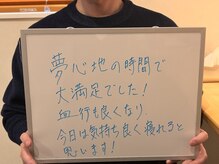 夢心地の時間で
大満足でした!
血行も良くなり、
今日は気持ち良く寝れると
思います!